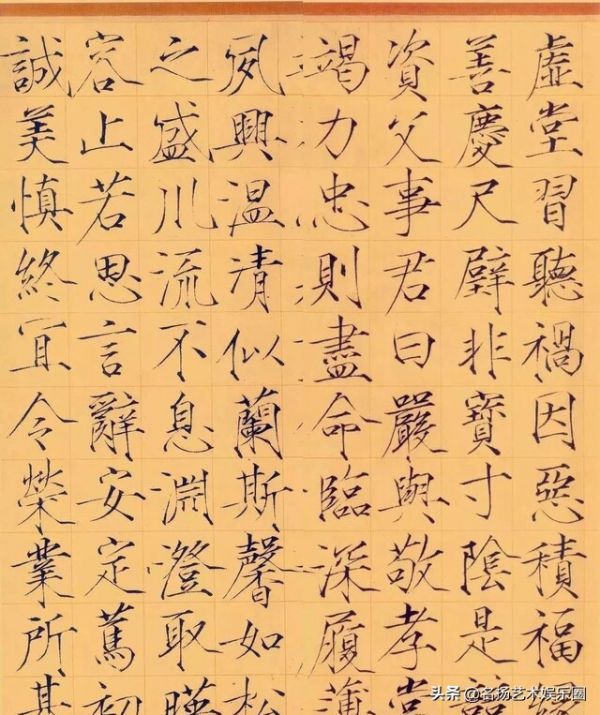 虛堂習聽禍因惡積福
善慶尺璧非寶寸陰是
資父事君曰嚴與敬孝當
竭力忠則盡命臨深履薄
夙興温清似蘭斯馨如松
之盛川流不息淵澄取暎
容止若思言辭安定篤初
誠美慎終宜令榮業所基
头条 @名扬艺术娱乐圈